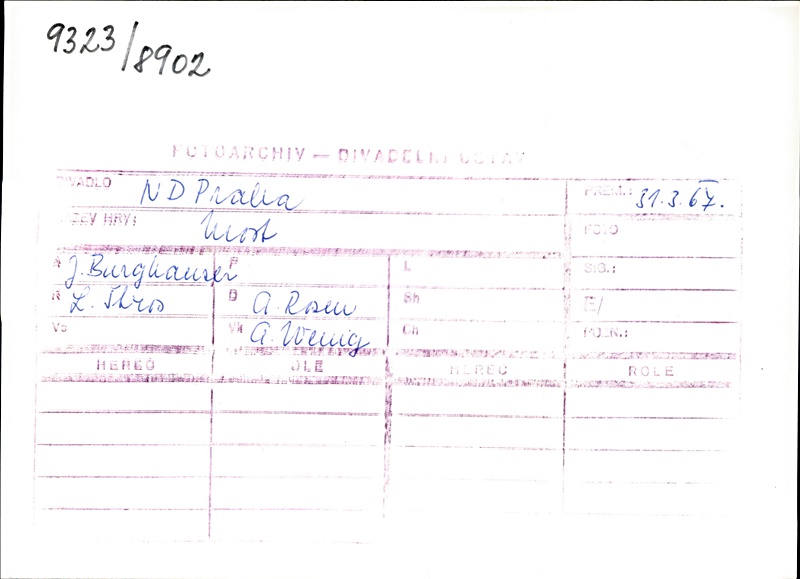 9323/8902
FOTOARCHIV — DIVADELNÍ ÚSTAV
DIVADLO ND Praha PREM.: 31.3.67.
NÁZEV HRY: Most FOTO
A J. Burghauser P L SIG.:
R L. Štros D A. Rosen Sh E/
Vo Vk A. Wenig Ch POZN.:
HEREC ROLE HEREC ROLE